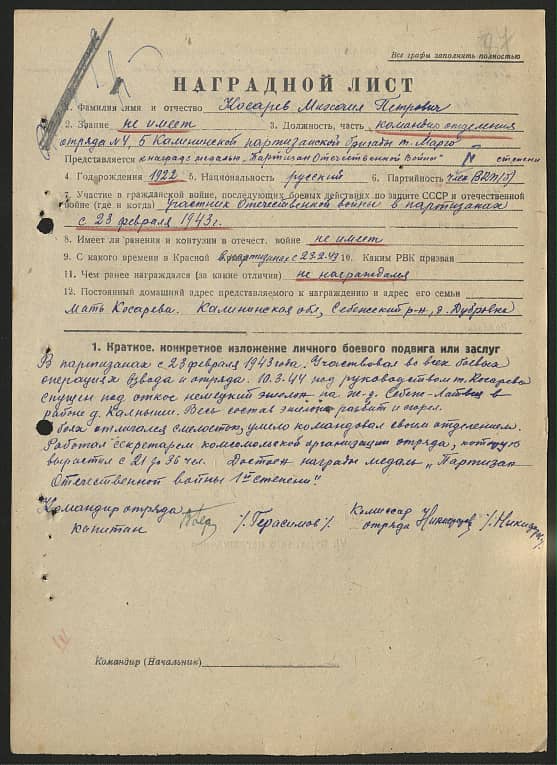 Все графы заполнять полностью
НАГРАДНОЙ ЛИСТ
1. Фамилия имя и отчество Косарев Михаил Петрович
2. Звание не имеет 3. Должность, часть командир отделения
отряда №4, 5 Калининской партизанской бригады т. Марго
Представляется к награде медалью "Партизан Отечественной Войны" степени
4 Год рождения 1922 5. Национальность русский 6. Партийность член ВКП(б)
7. Участие в гражданской войне, последующих боевых действиях по защите СССР и отечественной
войне (где и когда) участник Отечественной войны в партизанах
с 23 февраля 1943 г.
8. Имеет ли ранения и контузии в отечест. войне не имеет
9. С какого времени в Красной в партизанах с 23.2.43 10. Каким РВК призван
11. Чем ранее награждался (за какие отличия) не награждался
12. Постоянный домашний адрес представляемого к награждению и адрес его семьи
Мать Косарева. Калининская обл, Себежский р-н, д. Дубровка
1. Краткое, конкретное изложение личного боевого подвига или заслуг
В партизанах с 23 февраля 1943 года. Участвовал во всех боевых
операциях взвода и отряда. 10.3.44 под руководством т. Косарева
спущен под откос немецкий эшелон на ж-д Себеж-Латвия в
районе д. Весь состав эшелона разбит и сгорел.
В боях отличался смелостью, умело командовал своим отделением.
Работал секретарем комсомольской организации отряда, которую
вырастил с 21 до 36 чел. Достоин награды медаль "Партизан
Отечественной войны 1ой степени".
Командир отряда
капитан /Герасимов/
Комиссар
отряда
Командир (Начальник)